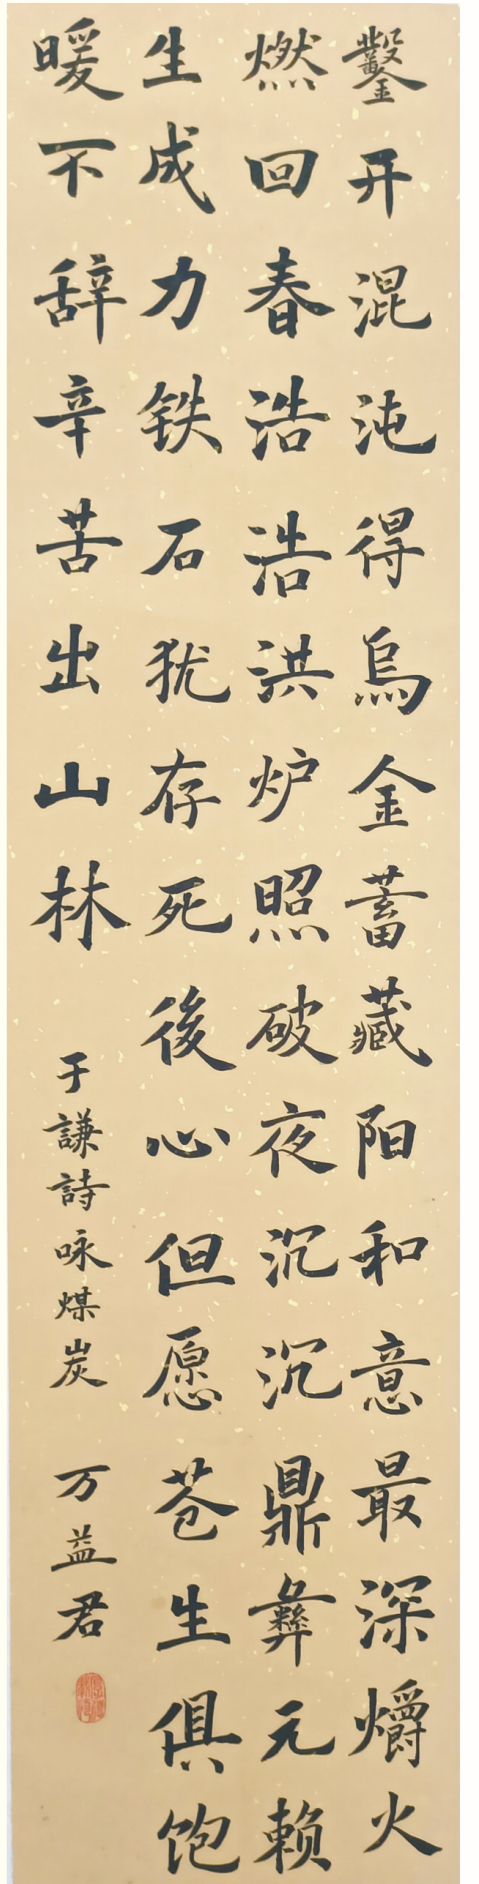 鑿开混沌得烏金蓄藏阳和意最深爝火
燃回春浩浩洪炉照破夜沉沉鼎彝元赖
生成力铁石犹存死後心但愿苍生俱饱
暖不辞辛苦出山林
于謙詩咏煤炭
万益君